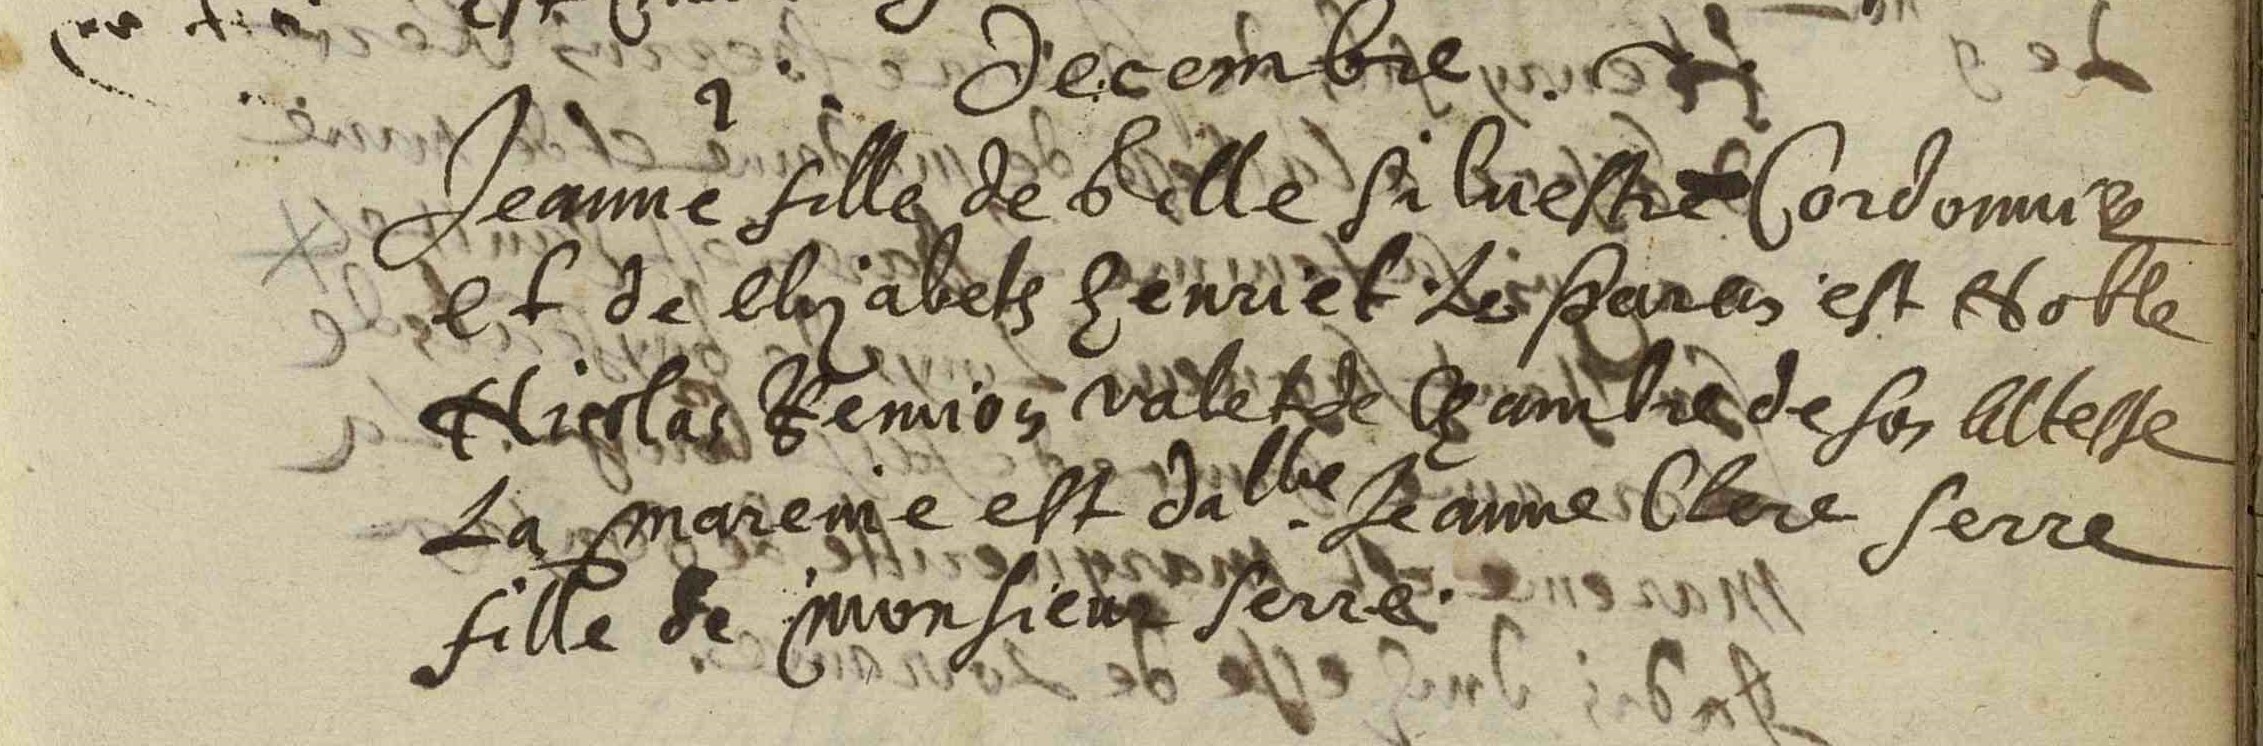 Decembre.
Jeanne fille de bille siluestre Cordonnier
et de elizabeth henriet Le paren est Noble
Nicolas Remion valet de Chambre de son Altesse
La mareine est dalle. Jeanne Clere serre
fille de monsieur serre.